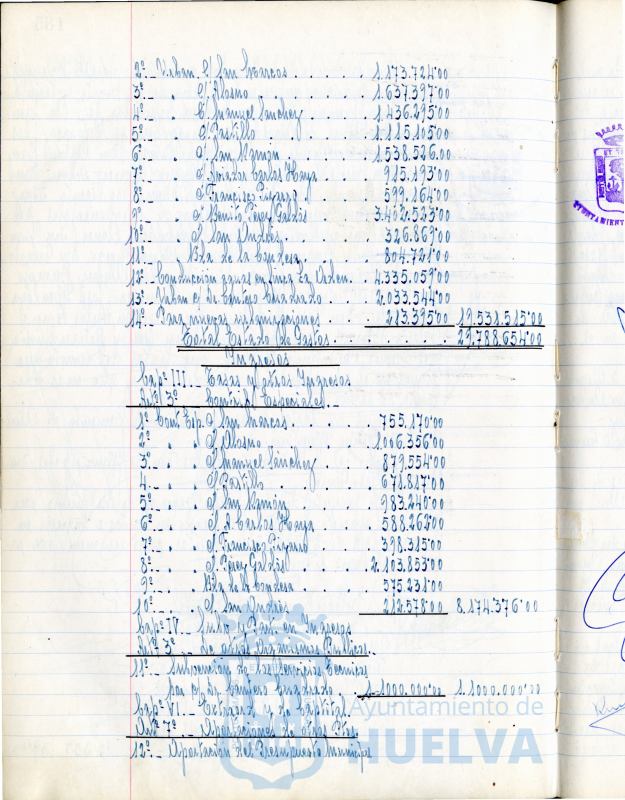 2º._ Urban. C/ San Marcos . . . . . . 1.173.724'00
3º._ " C/ Alosno . . . . . . 1.637.397'00
4º._ " C. Manuel Sanchez . . . . 1.436.295'00
5º._ " C/ Pastillo . . . . . 1.115.105'00
6º._ " C/ San Ramón . . . . . 1.538.526.00
7º._ " C/ Aviador Carlos Haya . . . 915.193'00
8º._ " C/ Francisco Pizarro . . . . 599.164'00
9º._ " C/ Benito Perez Galdós . . . 3.402.523'00
10º._ " C/ San Andrés . . . . . 326.869'00
11º._ " Bda. de la Condesa . . . . 804.721'00
12º._ Conducción aguas en finca La Orden . . 4.335.059'00
13º._ Urban c/ de Cantero Cuadrado . . 2.033.544'00
14º._ Para nuevas urbanizaciones . . 213.395'00 19.531.515'00
Total Estado de Gastos . . . . . . . . 29.788.654'00
Ingresos
Capº III._ Tasas y otros Ingresos
Artº 3º Contrib. Especiales._
1º Cont. Esp. C/ San Marcos . . . . . 755.170'00
2º._ " " C/ Alosno . . . . . 1.006.356'00
3º._ " " C/ Manuel Sanchez . . . . 879.554'00
4._ " " C/ Pastillo . . . . . 671.817'00
5º._ " " C/ San Ramón . . . . . 983.240'00
6º._ " " C/ A. Carlos Haya . . . . 588.262'00
7º._ " " C/ Francisco Pizarro . . . 398.315'00
8º._ " " C/ Perez Galdós . . . . 2.103.853'00
9º._ " Bda de la Condesa . . . . 575.231'00
10º._ " C/. San Andrés . . . . 212.578'00 8.174.376'00
Capº IV._ en Ingresos
Artº 3º._ De otros Organismos Públicos._
11º._ Subvención de los Servicios Tecnicos
por c/ de Cantero Cuadrado . . 1.1000.000'00 1.1000.000'00
Capº VI._ Extraord. y de Capital._
Artº 7º._ Aportaciones de otros Ptos.
12º._ Aportación del Presupuesto Municipal
Ayuntamiento de
HUELVA